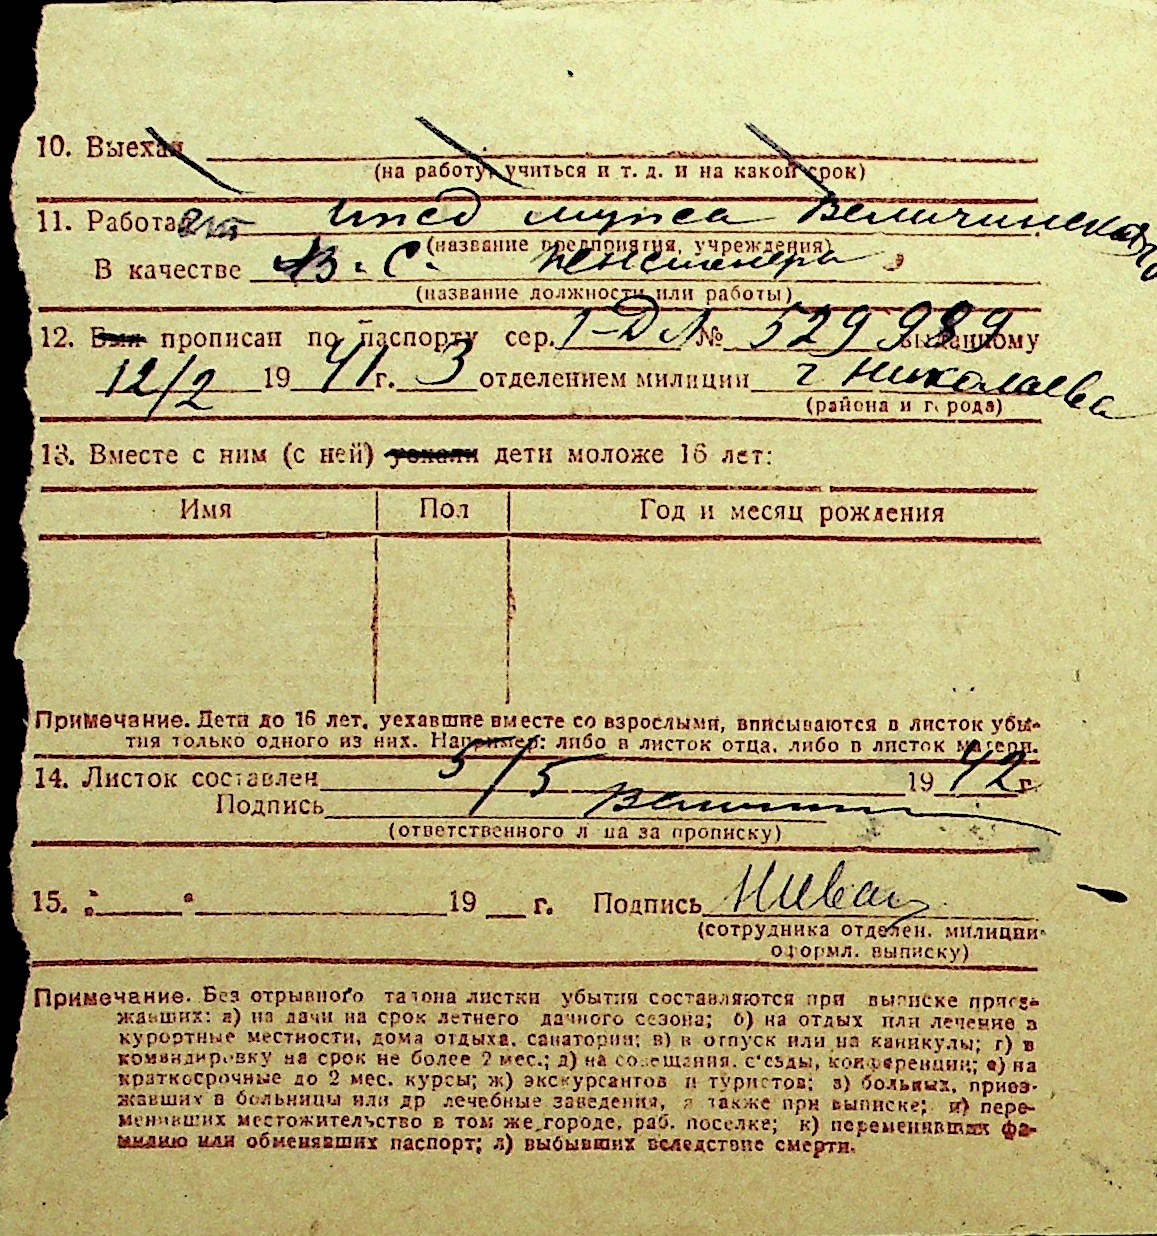 10. Выехал
(на работу, учиться и т. д. и на какой срок)
11. Работает ижд мужа Величинского
(название предприятия, учреждения)
В качестве В. С. пенсионера
(название должности или работы)
12. Был прописан по паспорту сер. 1-ДЛ № 529989 выданному
12/2 1941 г. 3 отделением милиции г Николаева
(района и города)
13. Вместе с ним (с ней) уехали дети моложе 16 лет:
Имя Пол Год и месяц рождения
Примечание. Дети до 16 лет, уехавшие вместе со взрослыми, вписываются в листок убы-
тия только одного из них. Например: либо в листок отца, либо в листок матери.
14. Листок составлен 5/5 1942 г.
Подпись
(ответственного лица за прописку)
15. „ “ 19 г. Подпись
(сотрудника отделен. милиции
оформл. выписку)
Примечание. Без отрывного талона листки убытия составляются при выписке приез-
жавших: а) на дачи на срок летнего дачного сезона; б) на отдых или лечение в
курортные местности, дома отдыха, санатории; в) в отпуск или на каникулы; г) в
командировку на срок не более 2 мес.; д) на совещания, съезды, конференции; е) на
краткосрочные до 2 мес. курсы; ж) экскурсантов и туристов; з) больных, приез-
жавших в больницы или др лечебные заведения, а также при выписке; и) пере-
менивших местожительство в том же городе, раб. поселке; к) переменивших фа-
милию или обменявших паспорт; л) выбывших вследствие смерти.